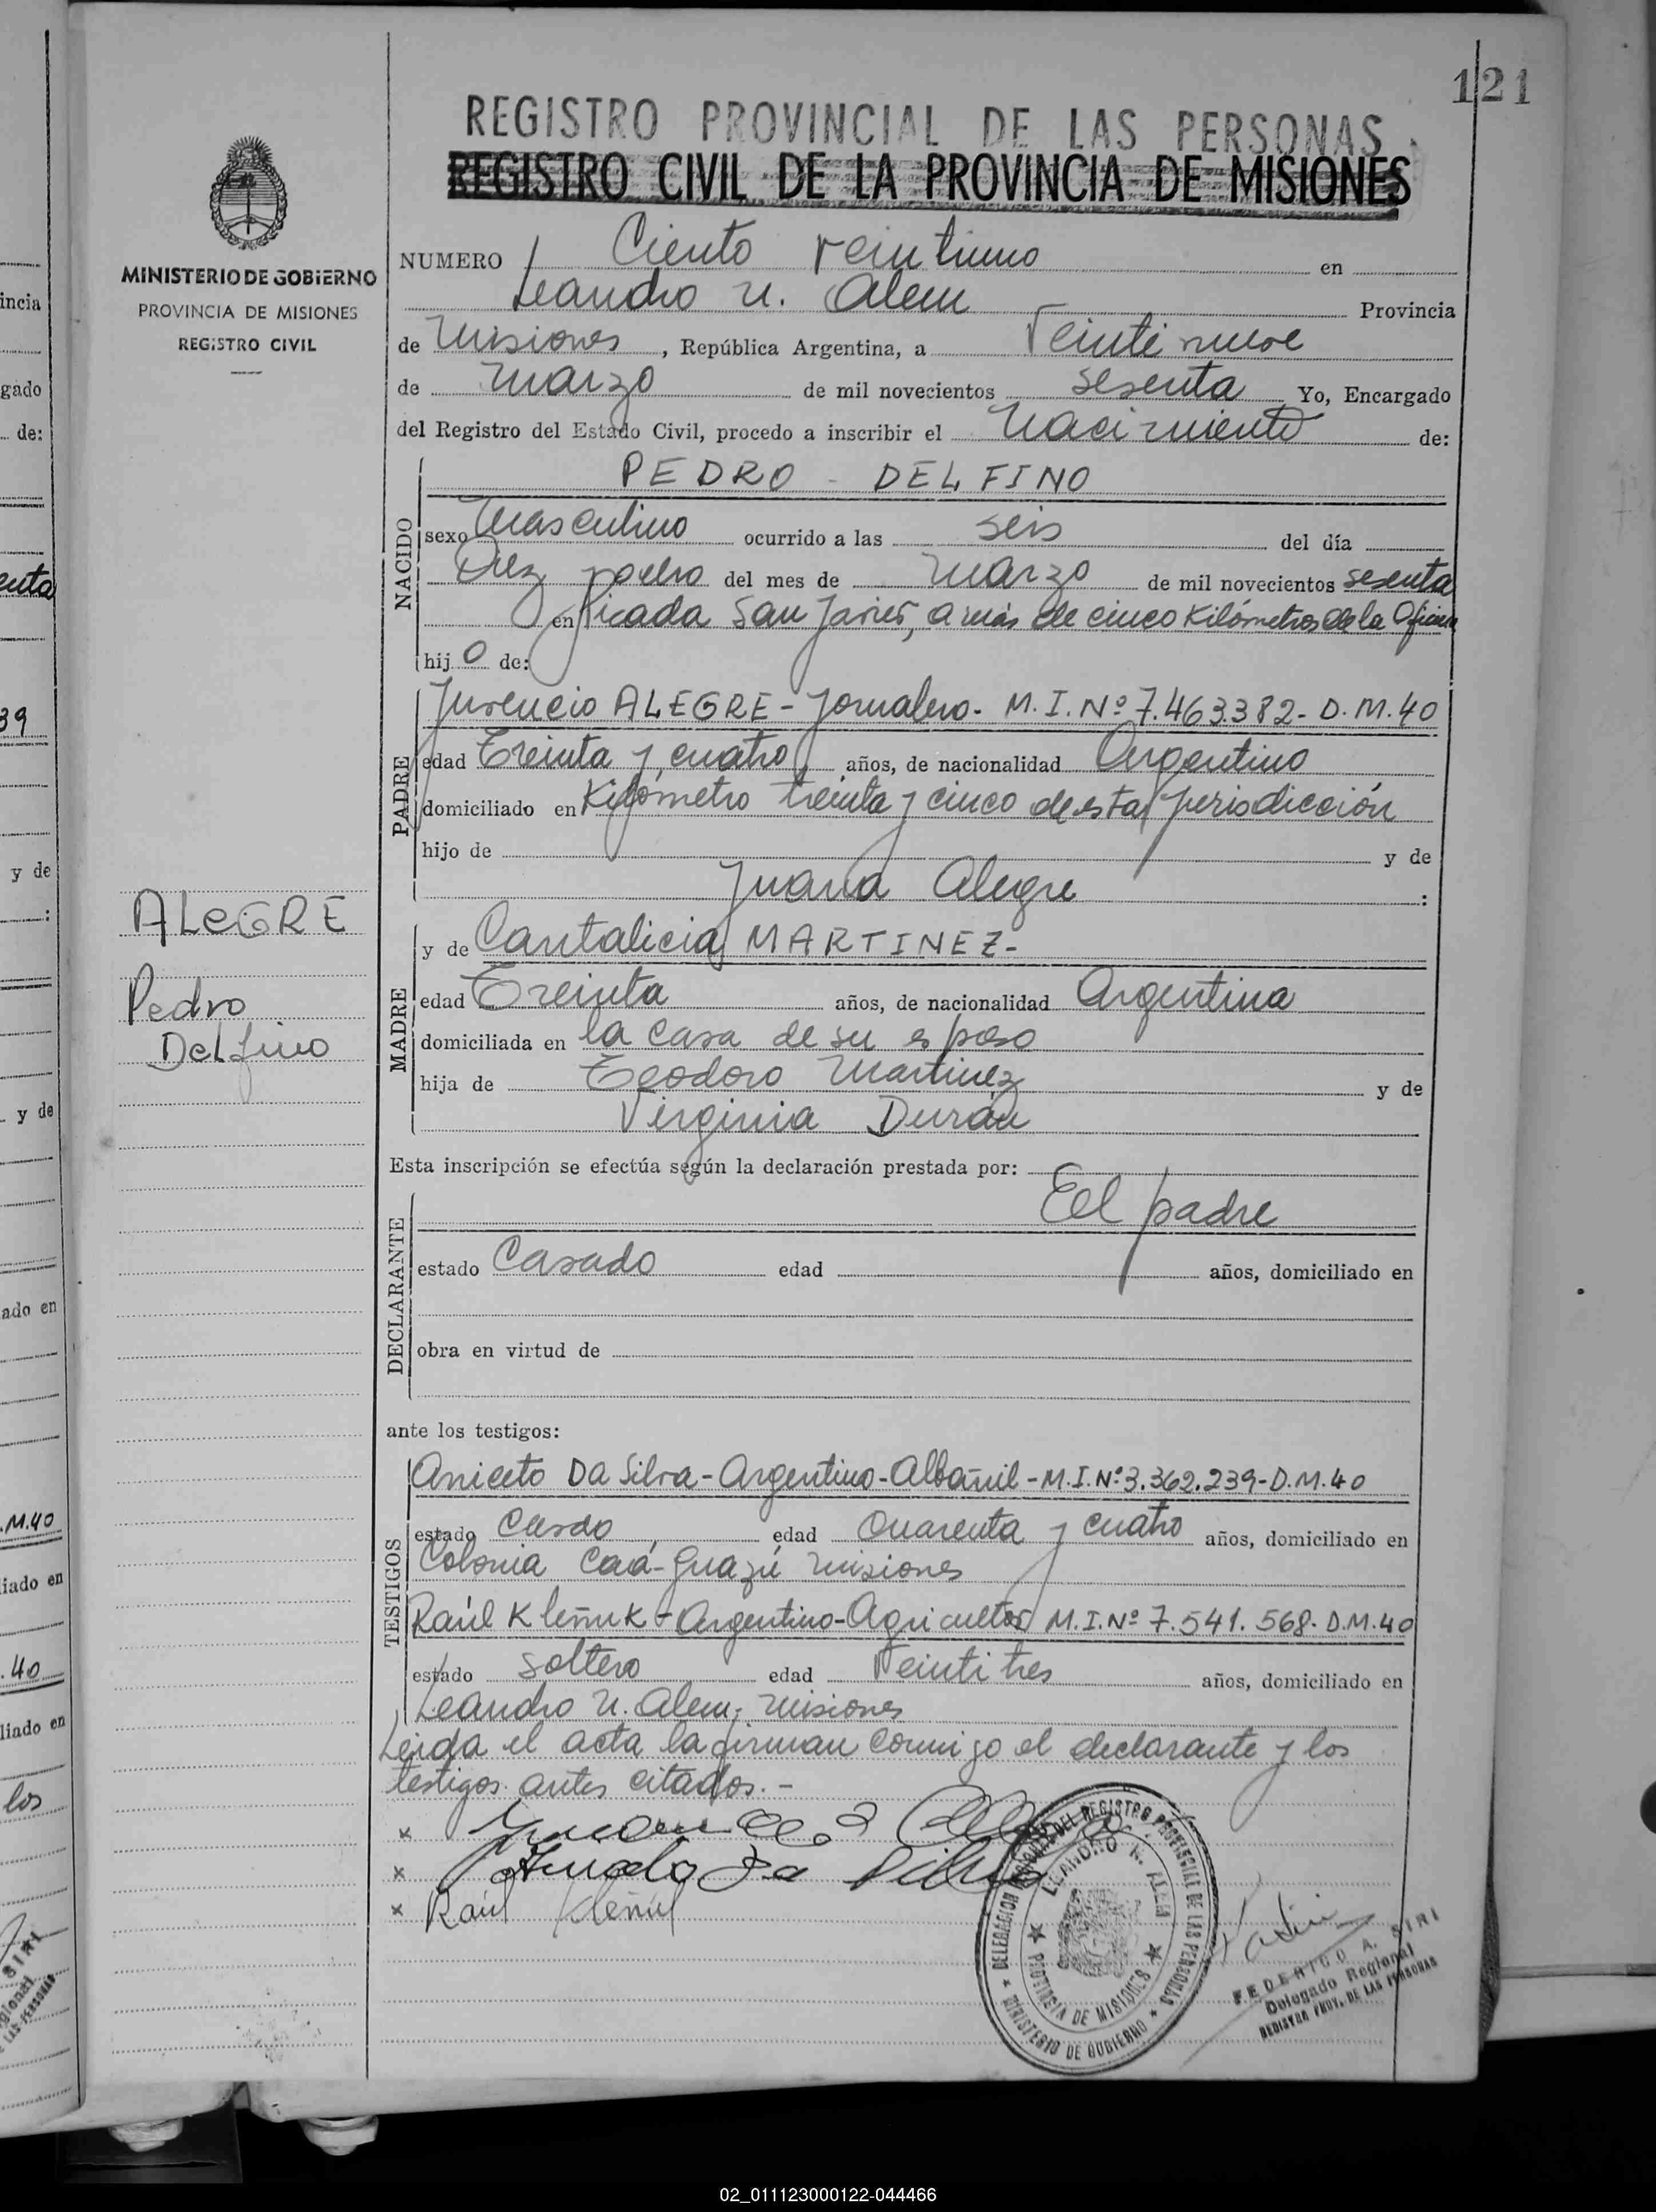 121
REGISTRO PROVINCIAL DE LAS PERSONAS
REGISTRO CIVIL DE LA PROVINCIA DE MISIONES
MINISTERIO DE GOBIERNO
PROVINCIA DE MISIONES
REGISTRO CIVIL
NUMERO Ciento veintiuno en
Leandro N. Alem Provincia
de Misiones, República Argentina, a Veintinueve
de Marzo de mil novecientos sesenta Yo, Encargado
del Registro del Estado Civil, procedo a inscribir el Nacimiento de:
NACIDO
PEDRO - DELFINO
sexo Masculino ocurrido a las seis del día
Diez y ocho del mes de Marzo de mil novecientos sesenta
en Picada San Javier, a más de cinco Kilómetros de la Oficina
hijo de:
PADRE
Juvencio ALEGRE - Jornalero - M. I. Nº 7.463.382 - D. M. 40
edad Treinta y cuatro años, de nacionalidad Argentino
domiciliado en Kilómetro treinta y cinco de esta Jurisdicción
hijo de y de
Juana Alegre :
ALEGRE
Pedro
Delfino
MADRE
y de Cantalicia MARTINEZ-
edad Treinta años, de nacionalidad Argentina
domiciliada en la casa de su esposo
hija de Teodoro Martinez y de
Virginia Durán
Esta inscripción se efectúa según la declaración prestada por:
DECLARANTE
El padre
estado Casado edad años, domiciliado en
obra en virtud de
ante los testigos:
TESTIGOS
Aniceto Da Silva - Argentino - Albañil - M.I.Nº 3.362.239 - D.M. 40
estado Casdo edad Cuarenta y cuatro años, domiciliado en
Colonia Caá-Guazú Misiones
Raúl Kleñuk - Argentino - Agricultor M.I.Nº 7.541.568 - D.M. 40
estado soltero edad Veintitres años, domiciliado en
Leandro N. Alem, Misiones
Leida el acta la firman conmigo el declarante y los
testigos antes citados. -
x
x Da Silva
x Raúl Kleñuk
DELEGACION REGIONAL DEL REGISTRO PROVINCIAL DE LAS PERSONAS
MINISTERIO DE GOBIERNO
LEANDRO N. ALEM
PROVINCIA DE MISIONES
FEDERICO A. SIRI
Delegado Regional
REGISTRO PROV. DE LAS PERSONAS
incia
gado
de:
39
y de
:
y de
ado en
.M.40
liado en
.40
liado en
los
02_011123000122-044466